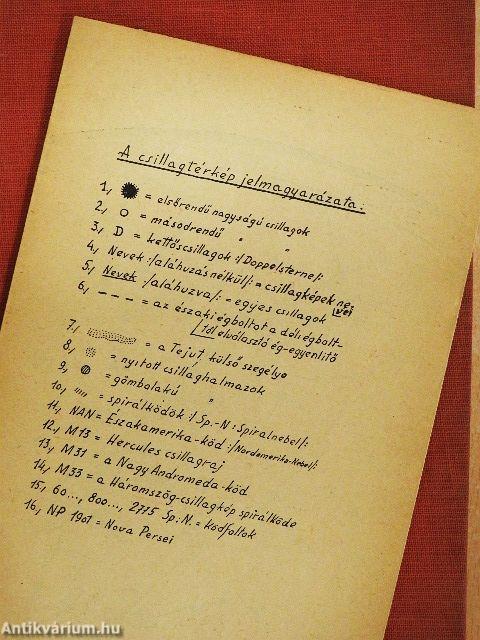 A csillagtérkép jelmagyarázata:
1, = elsőrendű nagyságú csillagok
2, = másodrendű " "
3, D = kettőscsillagok :/Doppelsterne/:
4, Nevek :/aláhúzás nélkül/: = csillagképek nevei
5, Nevek :/aláhúzva/: = egyes csillagok
6, --- = az északi égboltot a déli égbolt-
tól elválasztó ég-egyenlítő
7, = a Tejut külső szegélye
8, = nyitott csillaghalmazok
9, = gömbalakú "
10, = spirálködök :/Sp.-N: Spiralnebel/:
11, NAN = Északamerika-köd :/Nordamerika-Nebel/:
12, M13 = Hercules csillagraj
13, M31 = a Nagy Androméda-köd
14, M33 = a Háromszög-csillagkép spirálköde
15, 60..., 800..., 2775 Sp.N. = ködfoltok
16, NP 1901 = Nova Persei
Antikvárium.hu